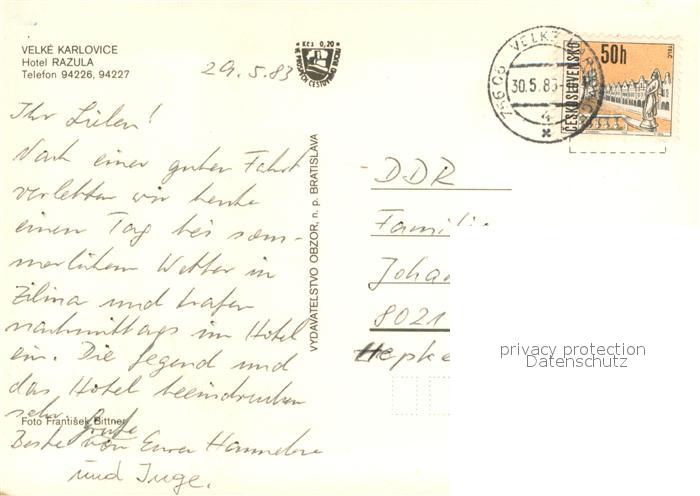 VELKÉ KARLOVICE
Hotel RAZULA
Telefon 94226, 94227
29.5.83
Kčs 0,20
VELKÉ KARLOVICE
756 06
30.5.83
4
ČESKOSLOVENSKO
50h
TELČ
Ihr Lieben!
Nach einer guten Fahrt
verlebten wir heute
einen Tag bei som-
merlichem Wetter in
Zilina und trafen
nachmittags im Hotel
ein. Die Gegend und
das Hotel beeindrucken
sehr.
Foto František Bittner
Beste Grüße von Eurer Hannelore
und Inge.
VYDAVATELSTVO OBZOR, n. p. BRATISLAVA
DDR
Famili
Joha
8021
Hepke
privacy protection
Datenschutz